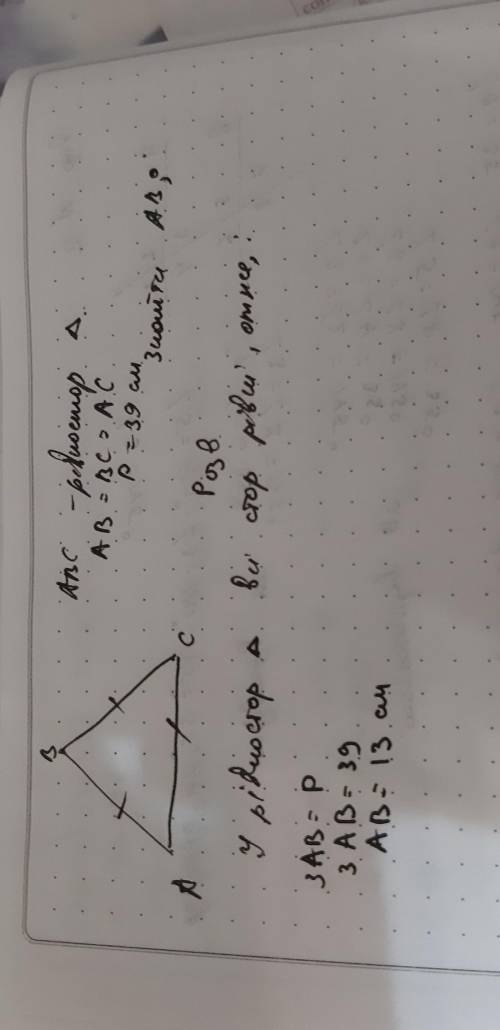 ABC - рівностор Δ.
AB = BC = AC
P = 39 см
Знайти AB,
B
A
C
Розв
У рівностор Δ всі стор рівні, отже, :
3AB = P
3AB = 39
AB = 13 см